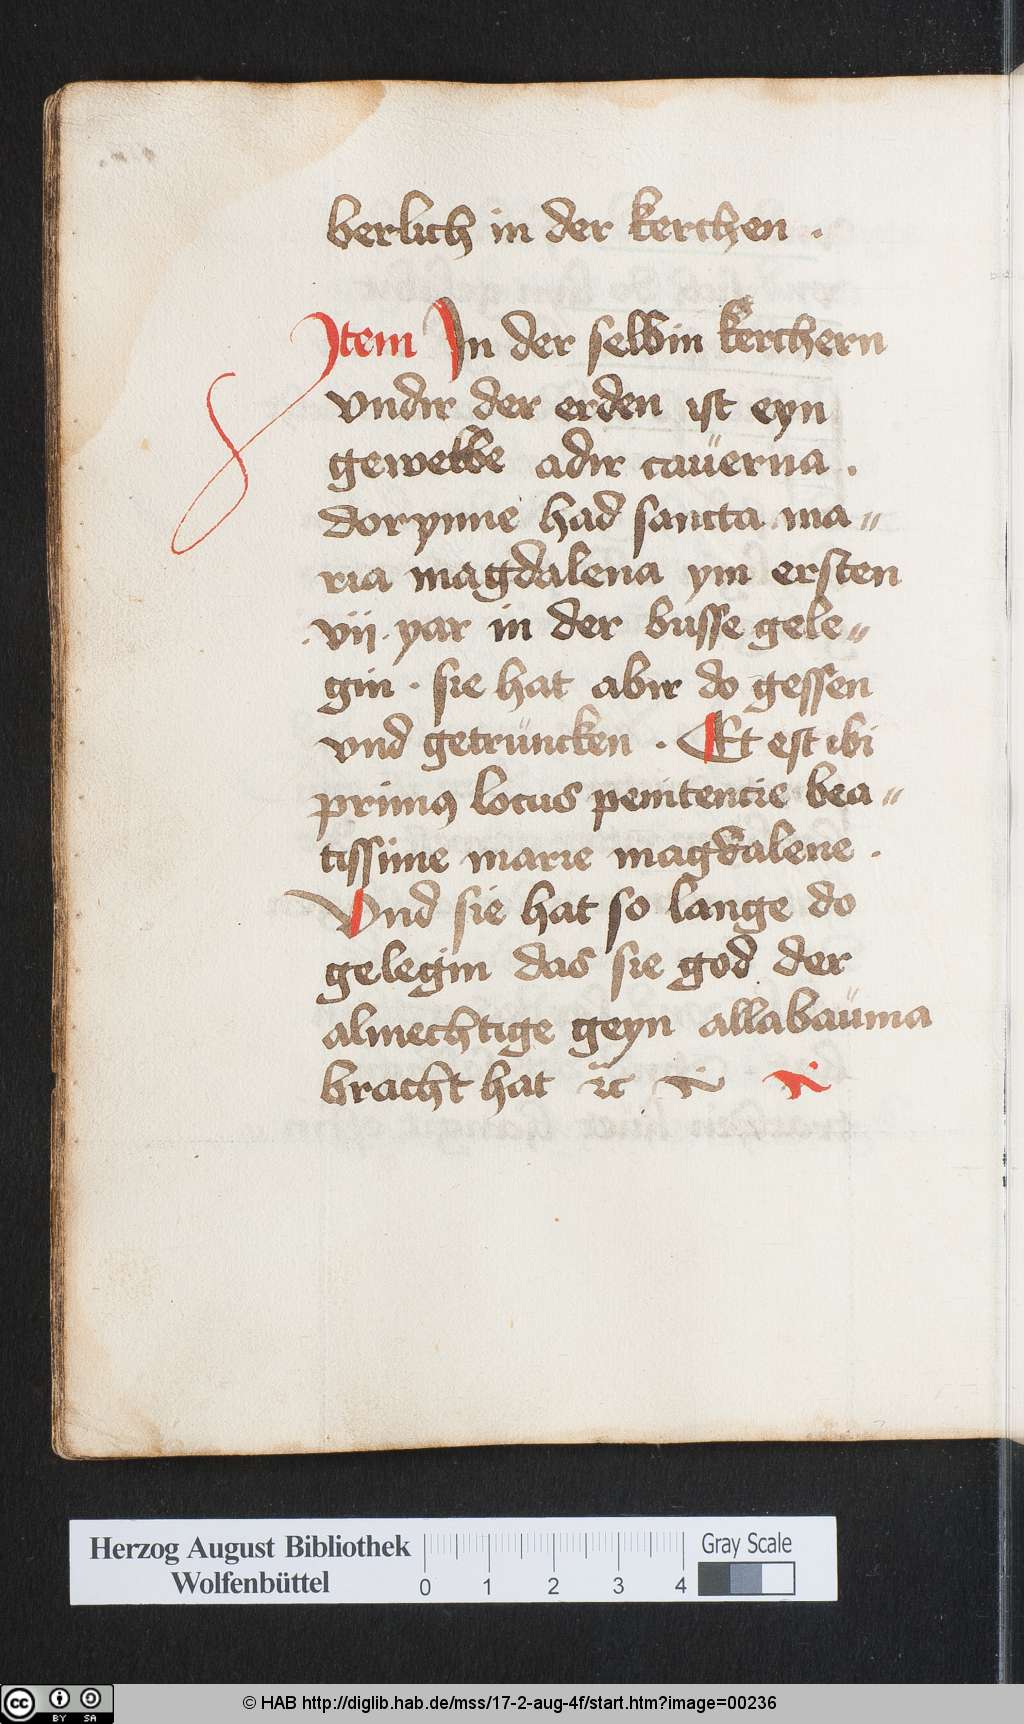 berlich in der kerchen .
Item In der selbin kerchern
vndir der erden ist eyn
gewelbe adir caüerna .
dorynne had sancta ma〃
ria magdalena ym ersten
. vij . yar in der busse gele〃
gin . sie hat abir do gessen
vnd getrüncken . Et est ibi
primꝯ locus penitencie bea〃
tissime marie magdalene .
Vnd sie hat so lange do
gelegin das sie god der
almechtige geyn allabaüma
bracht hat ⁊c̄
Herzog August Bibliothek
Wolfenbüttel
Gray Scale
0 1 2 3 4
cc BY SA
© HAB http://diglib.hab.de/mss/17-2-aug-4f/start.htm?image=00236